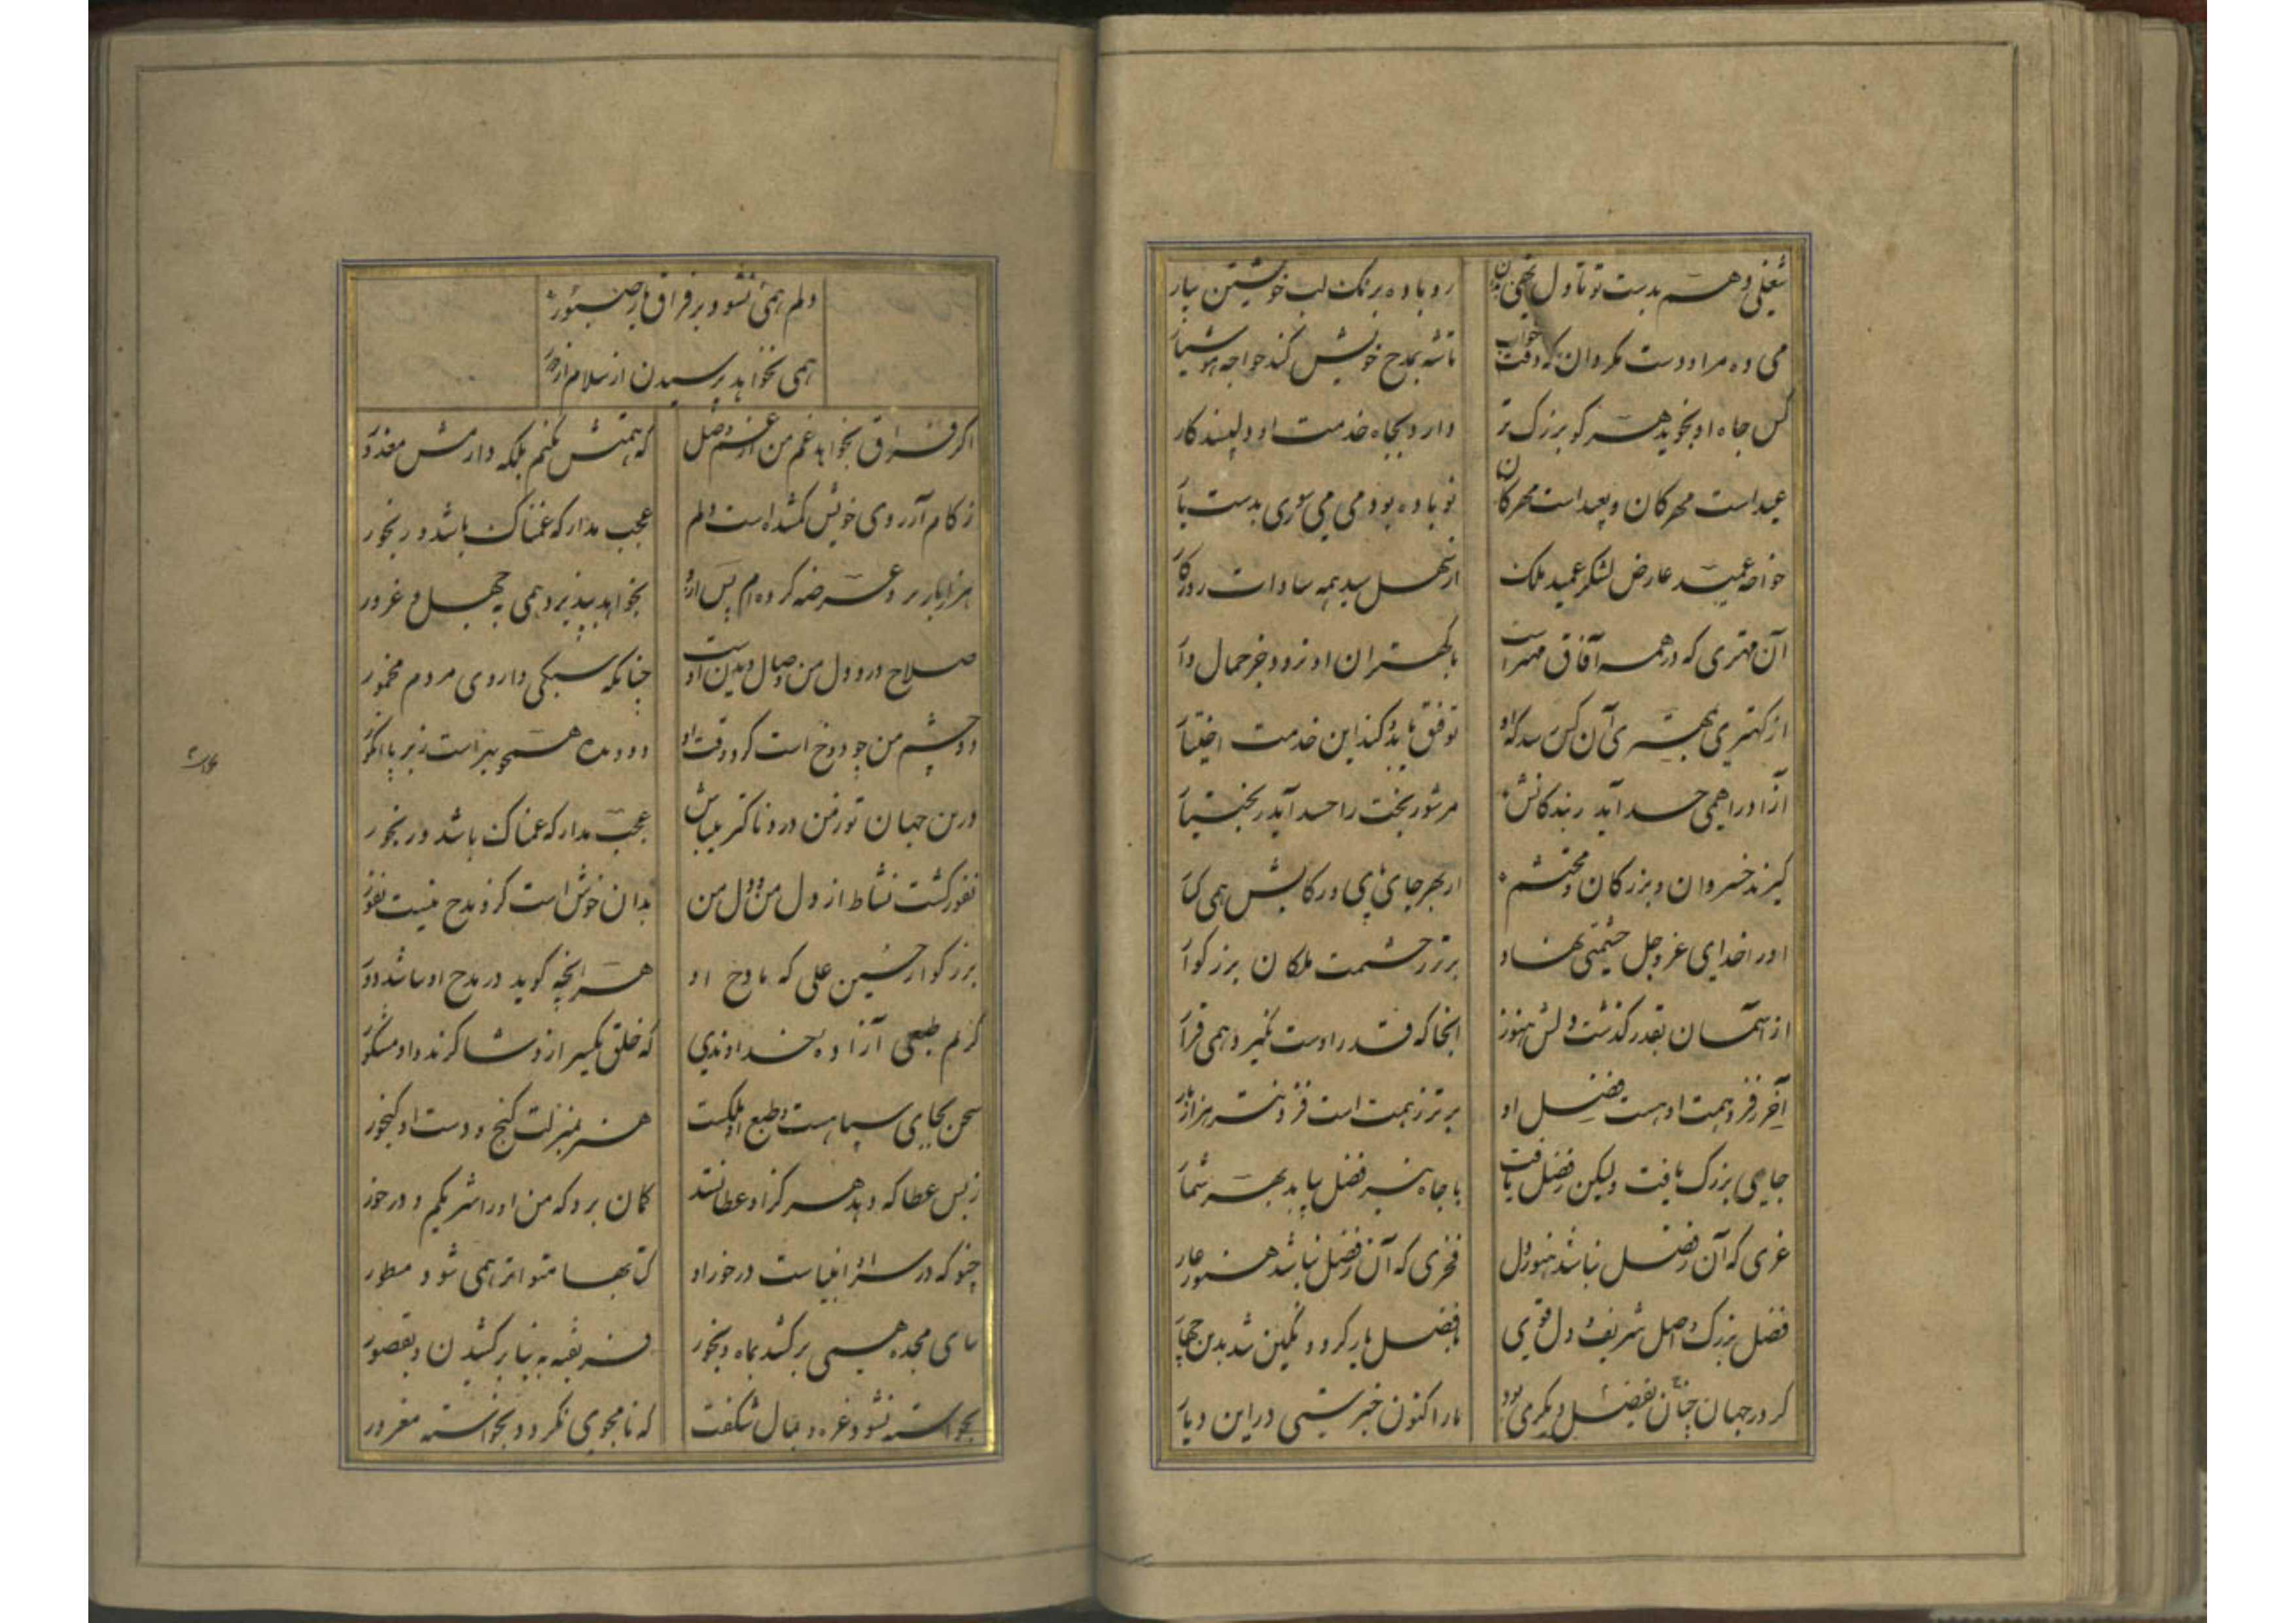 شغلی دهم بدست تو تا دل نهی بدان رو باده برنک لب خویشتن بیار
می ده مرا و دست مکردان که وقت خواب تا شه بمدح خویش کند خواجه هوشیار
کس جاه او بجوید هر کو بزرک تر دارد بجاه خدمت او دلپسند کار
عید است مهرکان و بعید است مهرکان نو باده بود می می سوری بدست یار
خواجه عمید عارض لشکر عمید ملک از نهل سید همه سادات روزکار
آن مهتری که در همه آفاق مهتر است با کهتران او نرود جز حمال وار
از کهتری بمهتری آن کس رسد که او توفیق یابد و کند این خدمت اختیار
آزاد را همی حسد آید ز بندکانش مر شور بخت را حسد آید ز بختیار
کیرند خسروان و بزرکان محتشم از بهر جای پای در کابش همی کنار
او را خدای عز و جل حشمتی نهاد برتر ز حشمت ملکان بزرکوار
از آسمان بقدر کذشت و دلش هنوز آنجا که قدر اوست نکیرد همی قرار
آخر ز فر و همت او هست فضل او برتر ز همت است فزونتر هزار بار
جاهی بزرک یافت ولیکن بفضل یافت با جاه نیز فضل بباید بهر شمار
عزی که آن ز فضل نباشد بنزد دل فخری که آن ز فضل نباشد هنوز عار
فضل بزرک و اصل شریف و دل قوی با فضل یار کرد و نکین شد بدین چهار
کر در جهان چنان بفضل دیکری بود ما را کنون خبرستی در این دیار
دلم همی نشود بر فراق یار صبور
همی نخواهد پرسیدن از سلام از دور
اکر فراق نخواهد غم من از غم وصل که همتش نکنم بلکه دارمش معذور
ز کام آرزوی خویش کمشده است دلم عجب مدار که غمناک باشد و رنجور
هزار بار برو عرضه کرده ام پس ازو نخواهد بپذیرد همی به جهل و غرور
صلاح درد دل من وصال دیدن اوست چنانکه سیکی داروی مردم مخمور
دو چشم من چو دو رخ است کرد وقت او دو دیده همچو بیر است زیر با انکور
درین جهان تو ز من دردناکتر بنیابی عجب مدار که غمناک باشد و رنجور
نفور کشت نشاط از دل من و دل من بدان خوش است کزو مدح نیست نفور
بزرکوار حسین علی که مادح او هر آنچه کوید در مدح او نباشد زور
کریم طبعی آزاده خداوندی که خلق یکسر ازو شاکرند و او مشکور
سخن بجای سپاهست و طبع او ملکست هنر بمنزلت کنج و دست او کنجور
ز بس عطا که دهد هر کرا عطا بستد کمان برد که من او را شریکم و در خور
چنو که در سزا انبیاست در خور او کتابها متواتر همی شود مسطور
بنای مجد همی برکشد بماه و بخور فریفته به بنا برکشیدن و بقصور
بخواسته نشود غره و بمال شکفت که نامجوی نکردد بخواسته مغرور